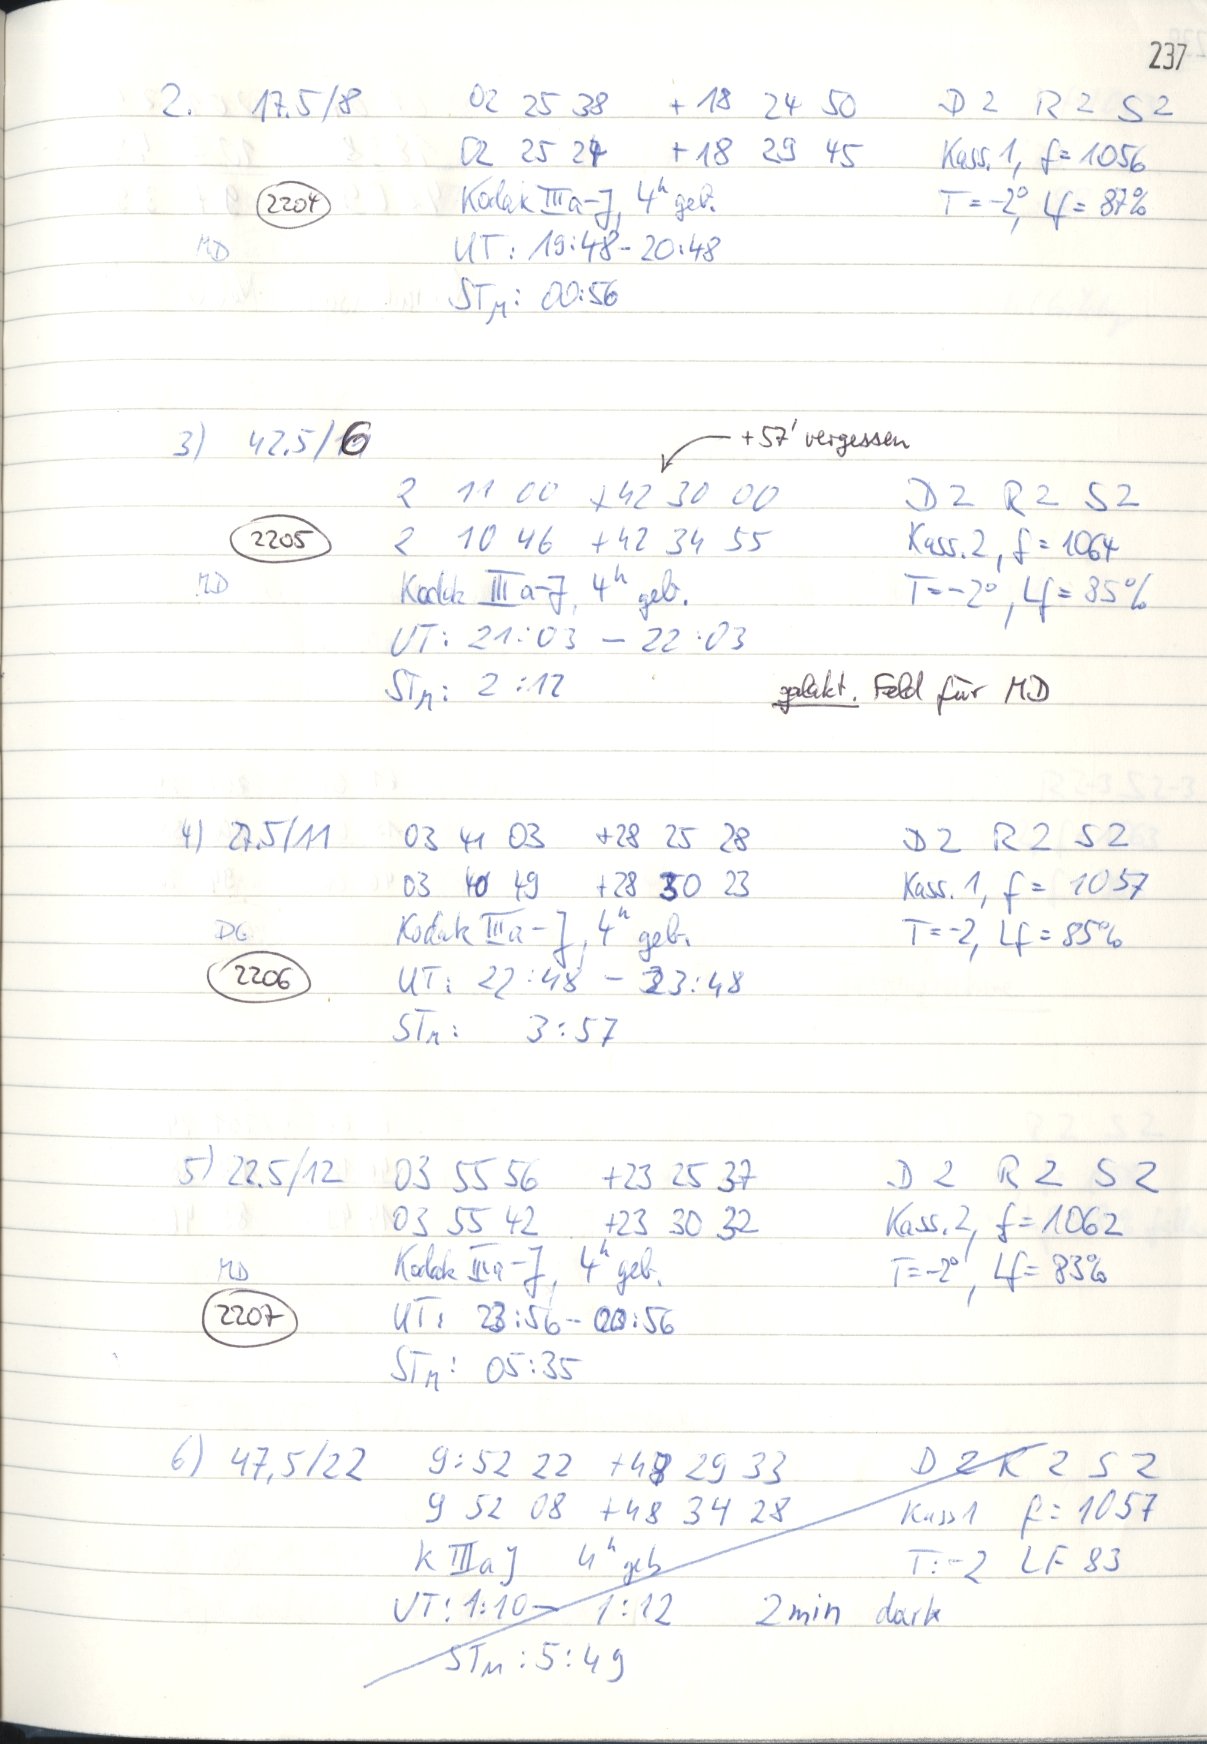 237
2. 17.5/8 02 25 38 +18 24 50 D2 R2 S2
02 25 24 +18 29 45 Kass. 1, f = 1056
2204 Kodak IIIa-J, 4h geb. T=-2°, Lf = 87%
MD UT: 19:48 - 20:48
STM: 00:56
3) 42.5/6 +57' vergessen
2 11 00 +42 30 00 D2 R2 S2
2205 2 10 46 +42 34 55 Kass. 2, f = 1064
MD Kodak IIIa-J, 4h geb. T=-2°, Lf = 85%
UT: 21:03 - 22:03
STM: 2:12 galakt. Feld für MD
4) 27.5/11 03 41 03 +28 25 28 D2 R2 S2
03 40 49 +28 30 23 Kass. 1, f = 1057
DG Kodak IIIa-J, 4h geb. T=-2, Lf = 85%
2206 UT: 22:48 - 23:48
STM: 3:57
5) 22.5/12 03 55 56 +23 25 37 D2 R2 S2
03 55 42 +23 30 32 Kass. 2, f = 1062
MD Kodak IIIa-J, 4h geb. T=-2°, Lf = 83%
2207 UT: 23:56 - 00:56
STM: 05:35
6) 47,5/22 9:52 22 +48 29 33 D2 R2 S2
9 52 08 +48 34 28 Kass 1 f = 1057
K IIIaJ 4h geb T: -2 LF 83
UT: 1:10 - 1:12 2 min dark
STM: 5:49